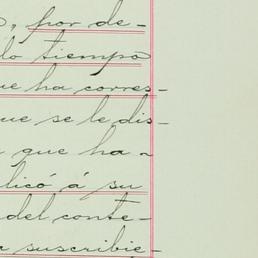 , por de-
lo tiempo
ue ha corres-
ue se le dis-
que ha-
licó á su
del conte-
suscribie-